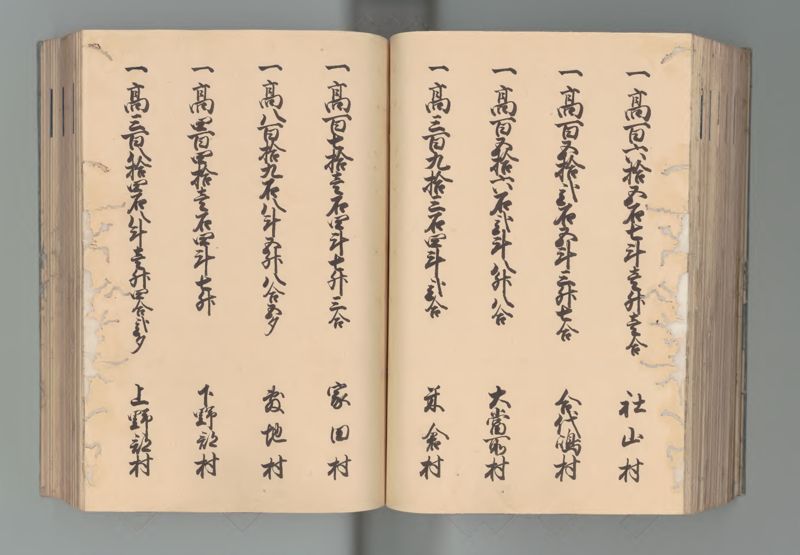 一高百六拾五石七斗壱升壱合 社山村
一高百五拾弐石五斗三升七合 合代嶋村
一高百五拾六石弐斗八升八合 大當所村
一高三百九拾三石四斗弐合 米倉村
一高百七拾壱石四斗七升三合 家田村
一高八百拾九石八斗五升八合五夕 敷地村
一高四百四拾壱石四斗七升 下野部村
一高三百八拾四石八斗壱升四合弐夕 上野部村